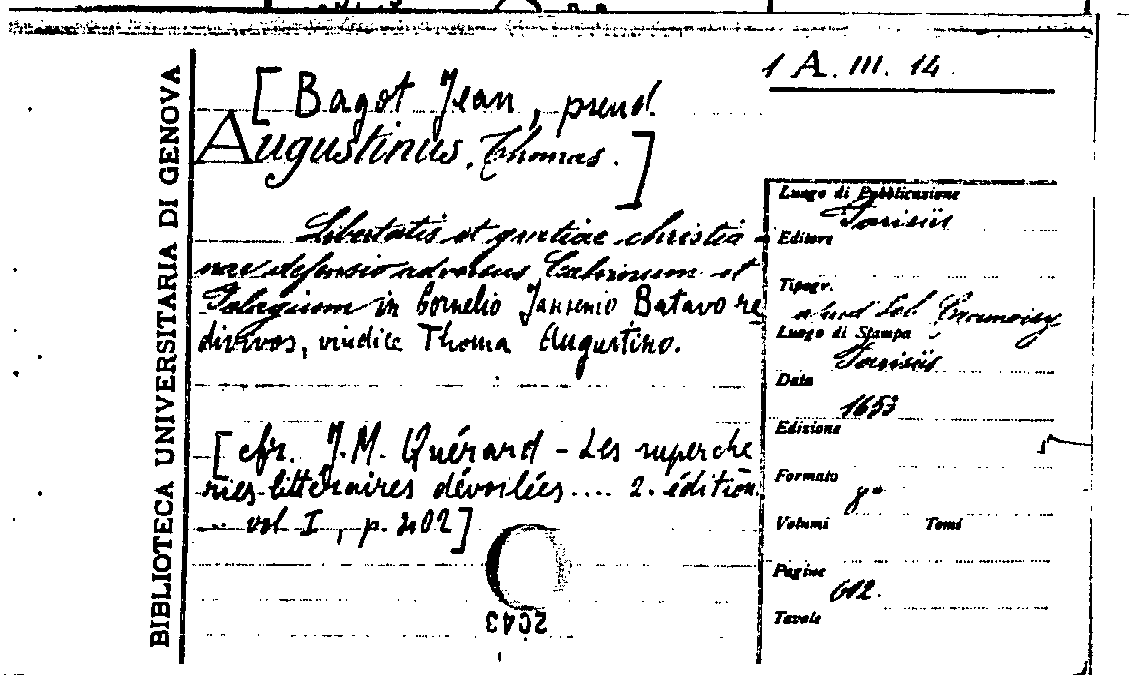 BIBLIOTECA UNIVERSITARIA DI GENOVA
1 A. III. 14
[Bagot Jean, pseud.
Augustinus, Thomas.]
Libertatis et gratiae christia-
nae defensio adversus Calvinum et
Pelagium in Cornelio Jansenio Batavo re
divivos, vindice Thoma Augustino.
[cfr. J.M. Quérard - Les superche
ries littéraires dévoilées.... 2. édition.
vol I, p. 402]
2043
Luogo di Pubblicazione
Parisiis
Editore
Tipogr.
apud Seb. Cramoisy
Luogo di Stampa
Parisiis
Data
1653
Edizione
Formato
8°
Volumi Tomi
Pagine
612.
Tavole